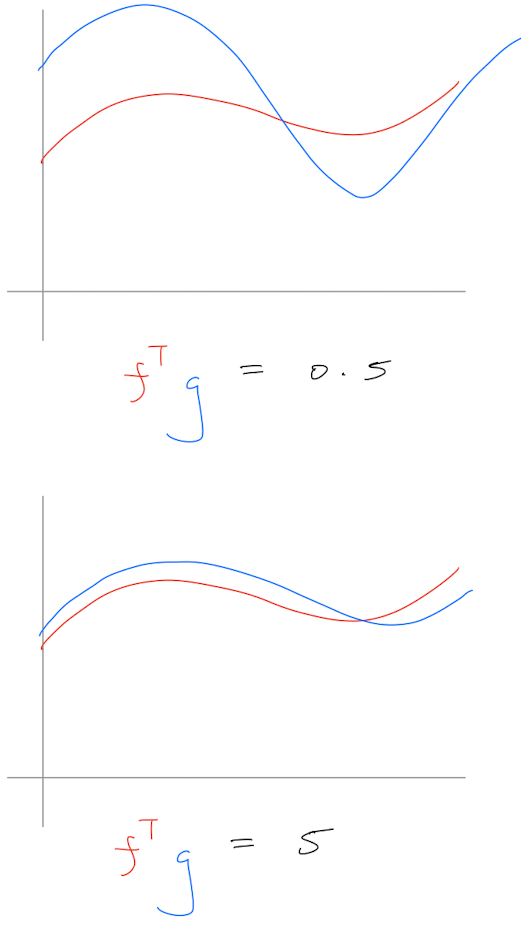 fᵀg = 0.5
fᵀg = 5